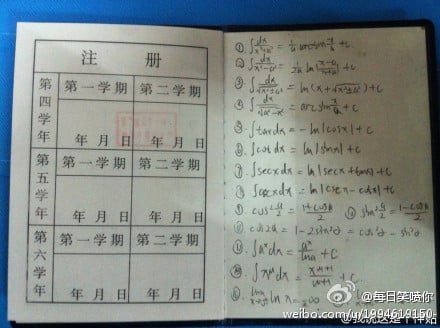 注 册
第四学年 第一学期 第二学期
年 月 日 年 月 日
第五学年 第一学期 第二学期
年 月 日 年 月 日
第六学年 第一学期 第二学期
年 月 日 年 月 日
① ∫dx/(x²+a²) = 1/a x/a + C
② ∫dx/(x²-a²) = 1/2a ln|(x-a)/(x+a)| + C
③ ∫dx/√(x²±a²) = ln(x+√(x²±a²)) + C
④ ∫dx/√(a²-x²) = arcsin x/a + C
5. ∫tanxdx = -ln|cosx| + C
6. ∫cotdx = ln|sinx| + C
7. ∫secxdx = ln|secx+tanx| + C
8. ∫cscxdx = ln|cscx-cotx| + C
⑨ cos² a/2 = (1+cosa)/2 ⑩ sin² a/2 = (1-cosa)/2
cos2a = 1-2sin²a = cos²a - sin²a
∫aˣdx = aˣ/lna + C
∫x^μdx = x^(μ+1)/(μ+1) + C
lim ln x = -∞
@每日笑喷你
weibo.com/u/1994619150